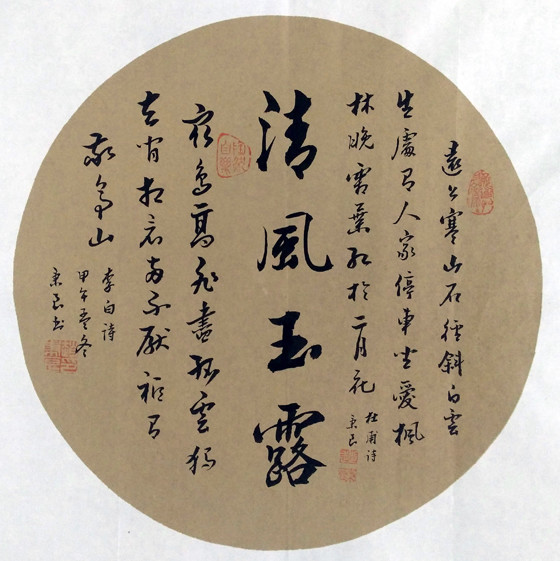 遠上寒山石徑斜白雲
生處有人家停車坐愛楓
林晚霜葉紅於二月花
杜甫詩
清風玉露
衆鳥高飛盡孤雲獨
去閑相看兩不厭祗有
敬亭山
李白詩
甲午孟冬